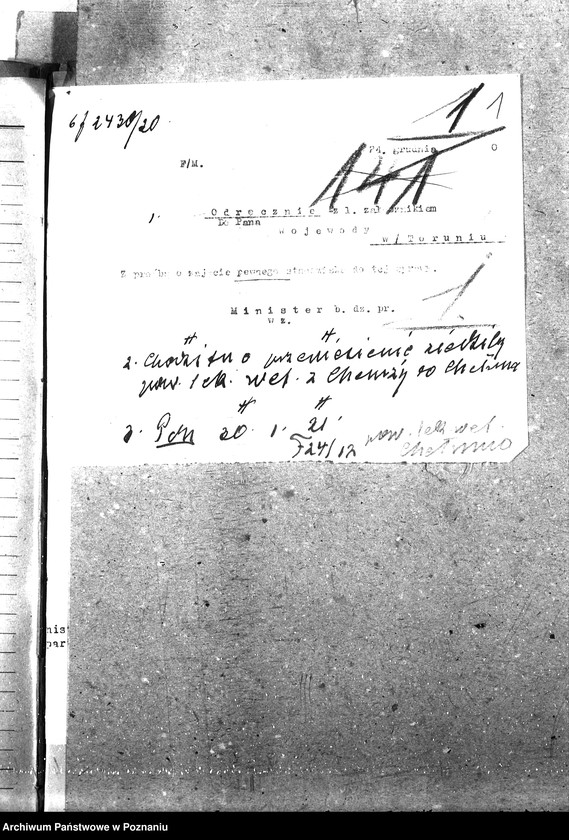 6f 2430/20
1 1
24. grudnia 0
F/M.
141
1. Odręcznie z 1. załącznikiem
Do Pana
Wojewody
w/Toruniu
Z prośbą o zajęcie pewnego stanowiska do tej sprawy.
Minister b. dz. pr.
wz.
1
2. Chodzi tu o przeniesienie siedziby
pow. lek. wet. z Chełmży do Chełmna
3. Pon 20. 1. 21.
F24/12
pow. lek. wet.
Chełmno
nis
par
Archiwum Państwowe w Poznaniu